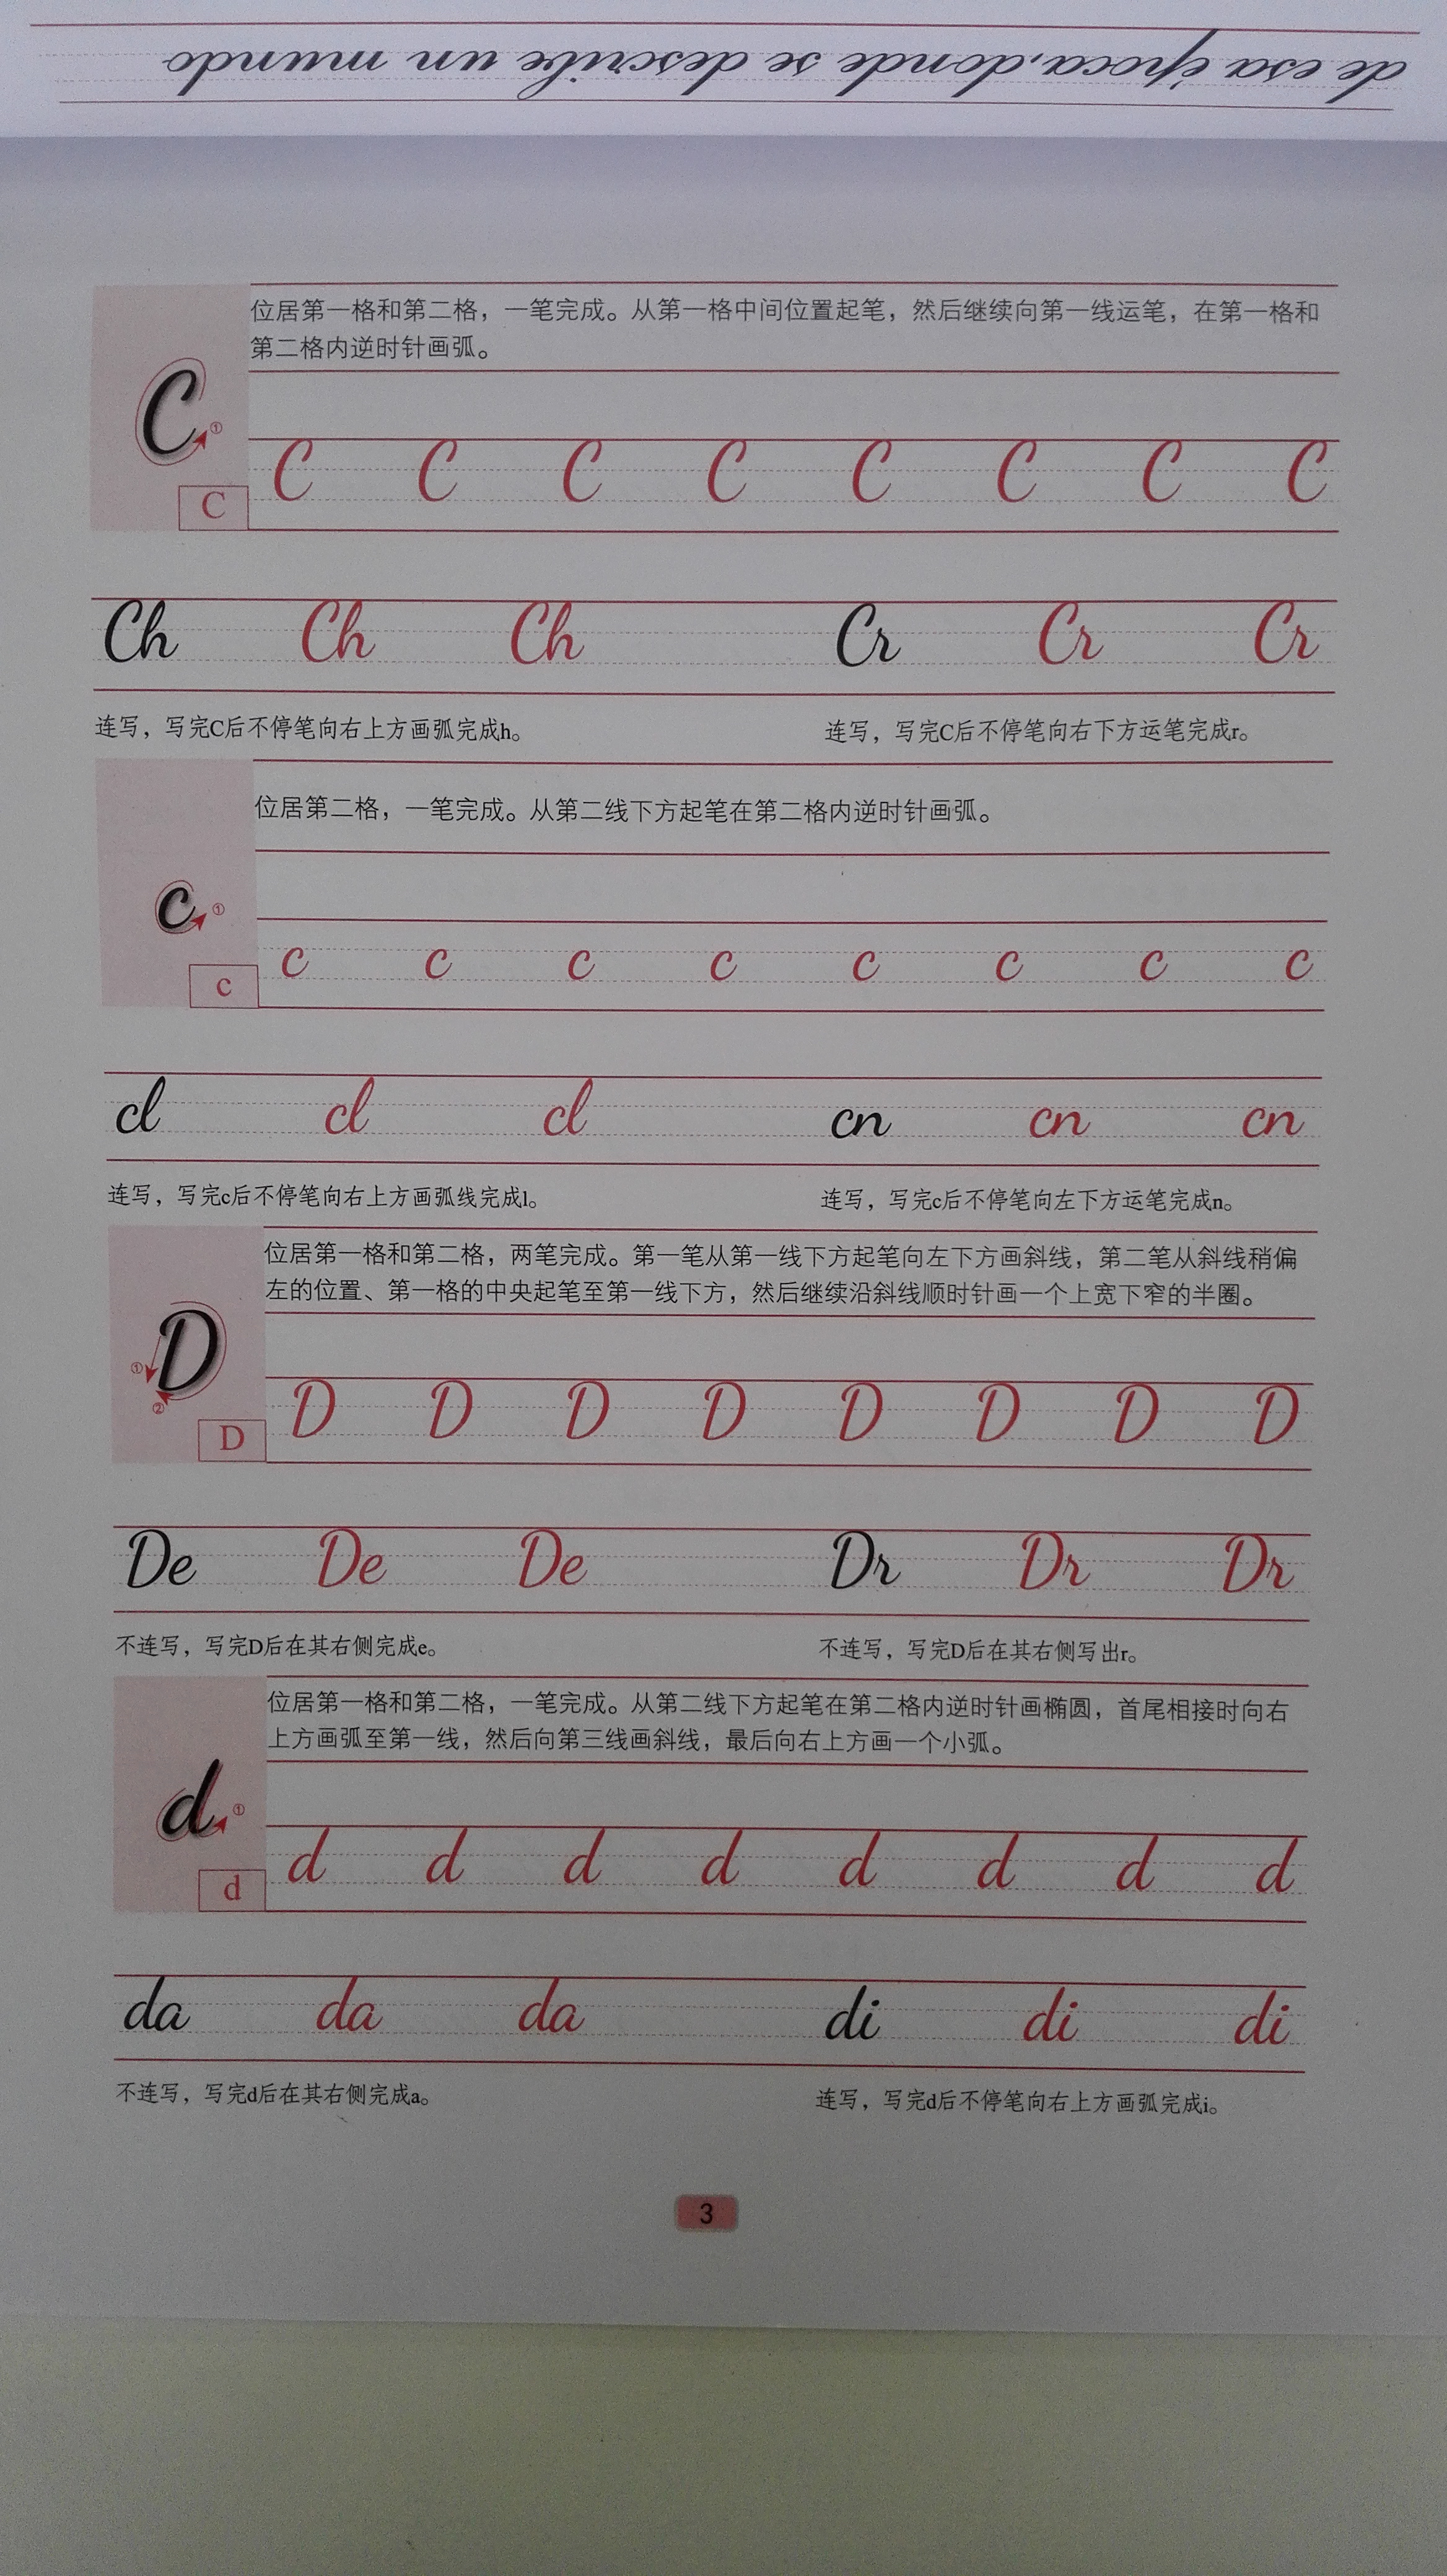 de esa época, donde se describe un mundo
位居第一格和第二格，一笔完成。从第一格中间位置起笔，然后继续向第一线运笔，在第一格和
第二格内逆时针画弧。
C ①
C C C C C C C C C
Ch Ch Ch Cr Cr Cr
连写，写完C后不停笔向右上方画弧完成h。 连写，写完C后不停笔向右下方运笔完成r。
位居第二格，一笔完成。从第二线下方起笔在第二格内逆时针画弧。
c ①
c c c c c c c c c
cl cl cl cn cn cn
连写，写完c后不停笔向右上方画弧线完成l。 连写，写完c后不停笔向左下方运笔完成n。
位居第一格和第二格，两笔完成。第一笔从第一线下方起笔向左下方画斜线，第二笔从斜线稍偏
左的位置、第一格的中央起笔至第一线下方，然后继续沿斜线顺时针画一个上宽下窄的半圈。
D ① ②
D D D D D D D D D
De De De Dr Dr Dr
不连写，写完D后在其右侧完成e。 不连写，写完D后在其右侧写出r。
位居第一格和第二格，一笔完成。从第二线下方起笔在第二格内逆时针画椭圆，首尾相接时向右
上方画弧至第一线，然后向第三线画斜线，最后向右上方画一个小弧。
d ①
d d d d d d d d d
da da da di di di
不连写，写完d后在其右侧完成a。 连写，写完d后不停笔向右上方画弧完成i。
3